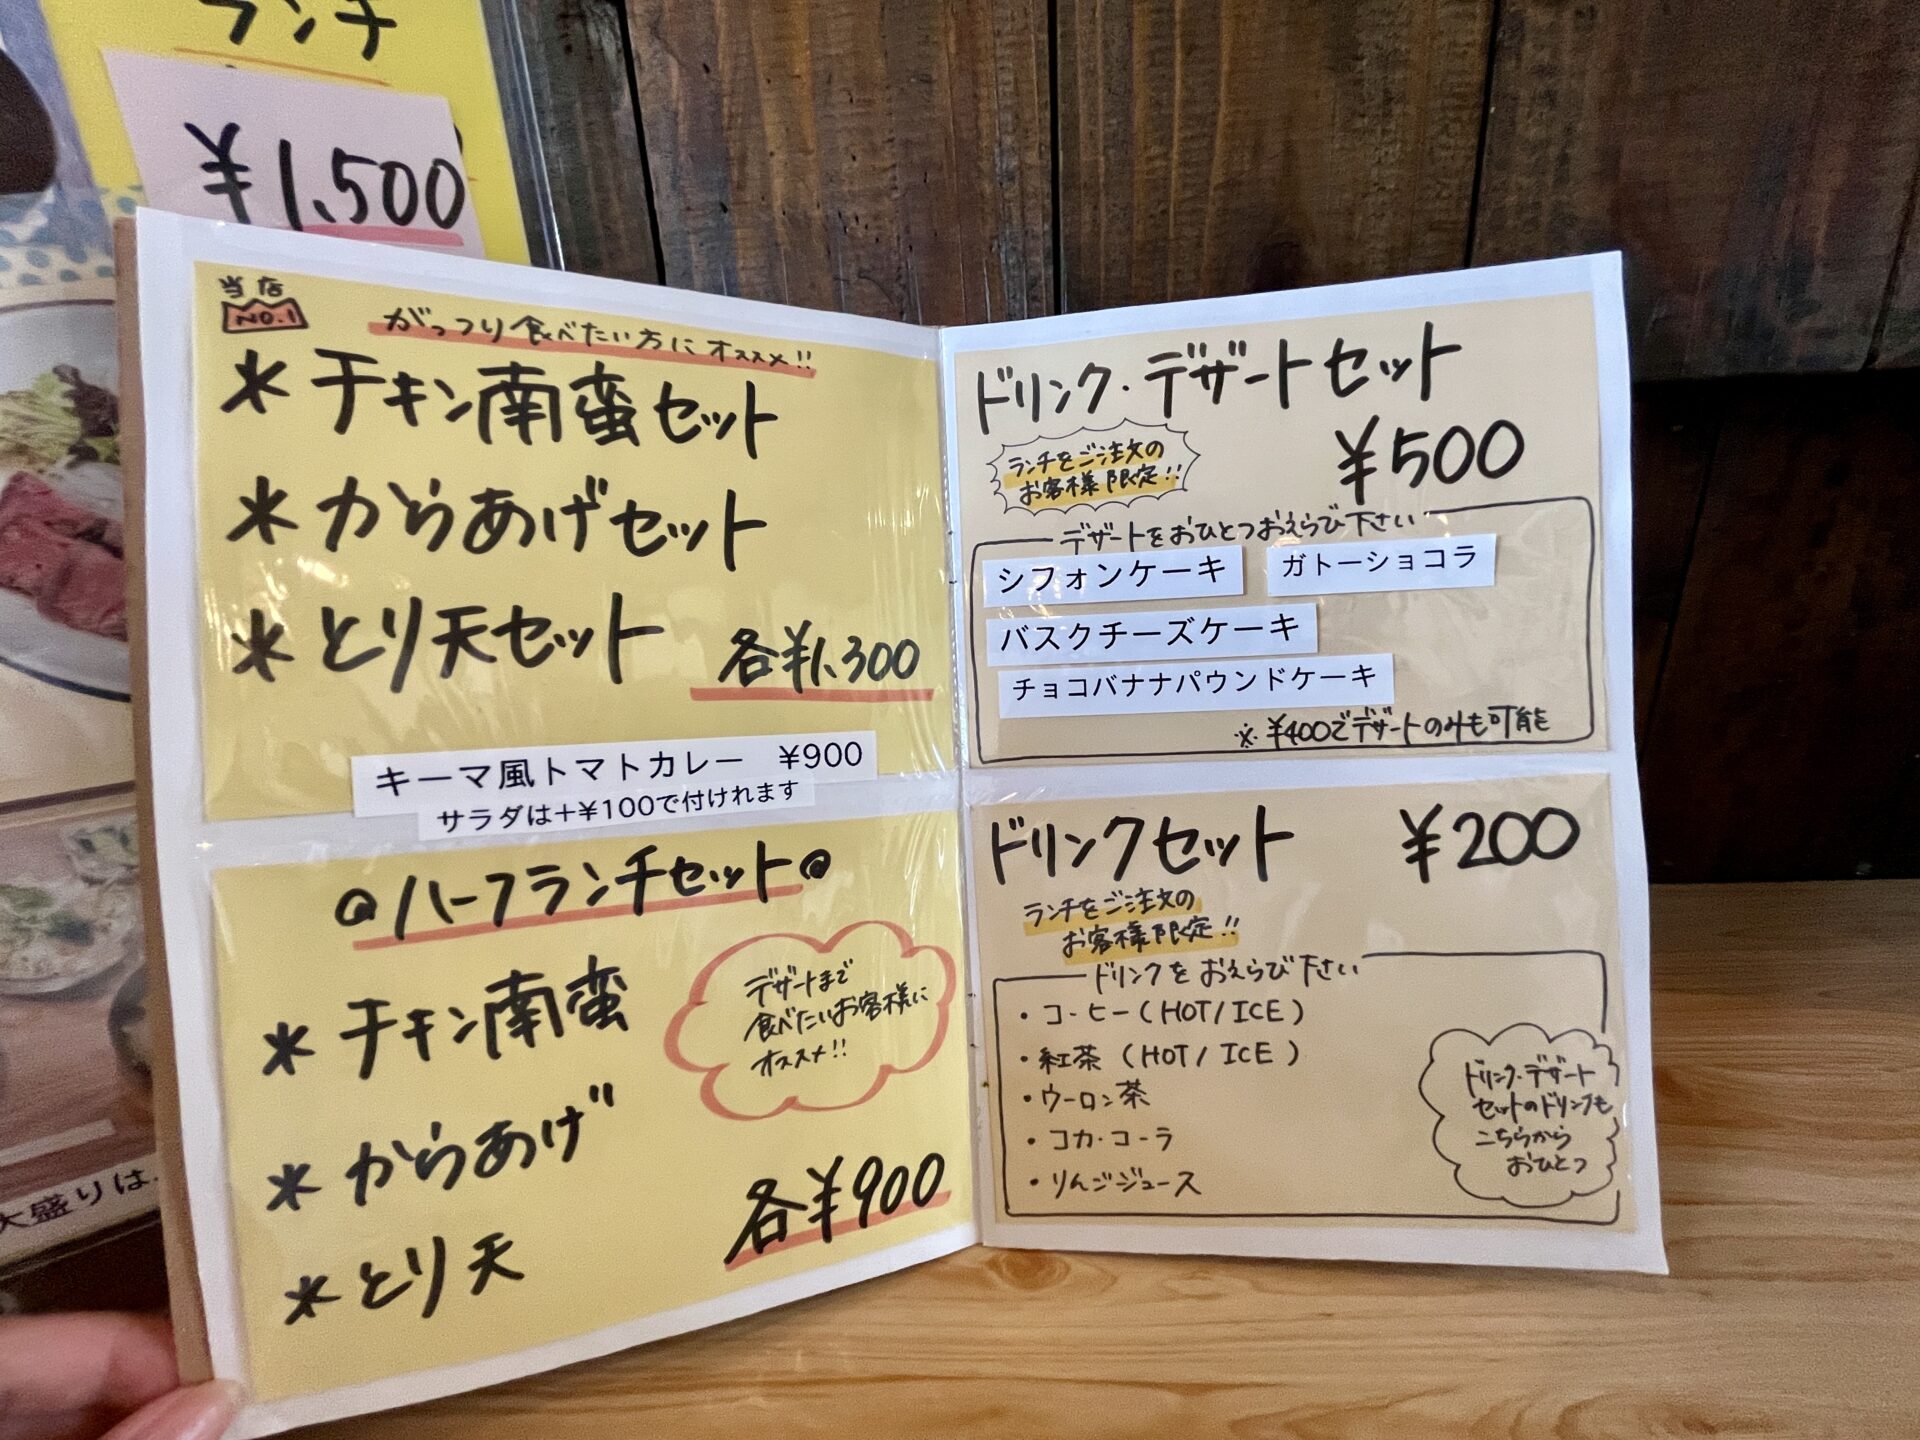 ランチ
¥1,500
当店
NO.1
がっつり食べたい方にオススメ!!
＊チキン南蛮セット
＊からあげセット
＊とり天セット
各¥1,300
キーマ風トマトカレー ¥900
サラダは+¥100で付けれます
@ハーフランチセット@
＊チキン南蛮
＊からあげ
＊とり天
各¥900
デザートまで
食べたいお客様に
オススメ!!
大盛りは
ドリンク・デザートセット
¥500
ランチをご注文の
お客様限定!!
デザートをおひとつおえらび下さい
シフォンケーキ ガトーショコラ
バスクチーズケーキ
チョコバナナパウンドケーキ
※¥400でデザートのみも可能
ドリンクセット ¥200
ランチをご注文の
お客様限定!!
ドリンクをおえらび下さい
・コーヒー(HOT/ICE)
・紅茶(HOT/ICE)
・ウーロン茶
・コカ・コーラ
・りんごジュース
ドリンク・デザート
セットのドリンクも
こちらから
おひとつ